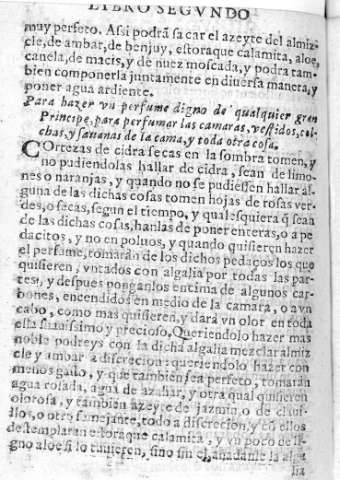 LIBRO SEGVNDO
muy perfeto. Assi podrà sacar el azeyte del almiz
cle, de ambar, de benjuy, estoraque calamita, aloe,
canela, de macis, y de nuez moscada, y podra tam-
bien componerla juntamente en diuersa manera, y
poner agua ardiente.
Para hazer vn perfume digno de qualquier gran
Principe, para perfumar las camaras, vestidos, col-
chas, y sauanas de la cama, y toda otra cosa.
COrtezas de cidra secas en la sombra tomen, y
no pudiendolas hallar de cidra, sean de limo-
nes o naranjas, y quando no se pudiessen hallar al-
guna de las dichas cosas tomen hojas de rosas ver-
des, o secas, segun el tiempo, y qualesquiera q̃ sean
de las dichas cosas, hanlas de poner enteras, o a pe
dacitos, y no en poluos, y quando quisieren hazer
el perfume, tomarán de los dichos pedaços los que
quisieren, vntados con algalia por todas las par-
tes, y despues ponganlos encima de algunos car-
bones, encendidos en medio de la camara, o a vn
cabo, como mas quisieren, y dará vn olor en toda
ella suauissimo y precioso, Queriendolo hazer mas
noble podreys con la dicha algalia mezclar almiz
cle y ambar a discrecion: queriendolo hazer con
menos gasto, y que tambien sea perfeto, tomarán
agua rosada, agua de azahar, y otra qual quisieren
olorosa, y tambien azeyte de jazmin, o de
o otro semejante, todo a discrecion, y en ellos
destemplaran estoraque calamita, y vn poco de li-
gno aloe si lo tuuieren, sino sin el, añadanle la alga
lia